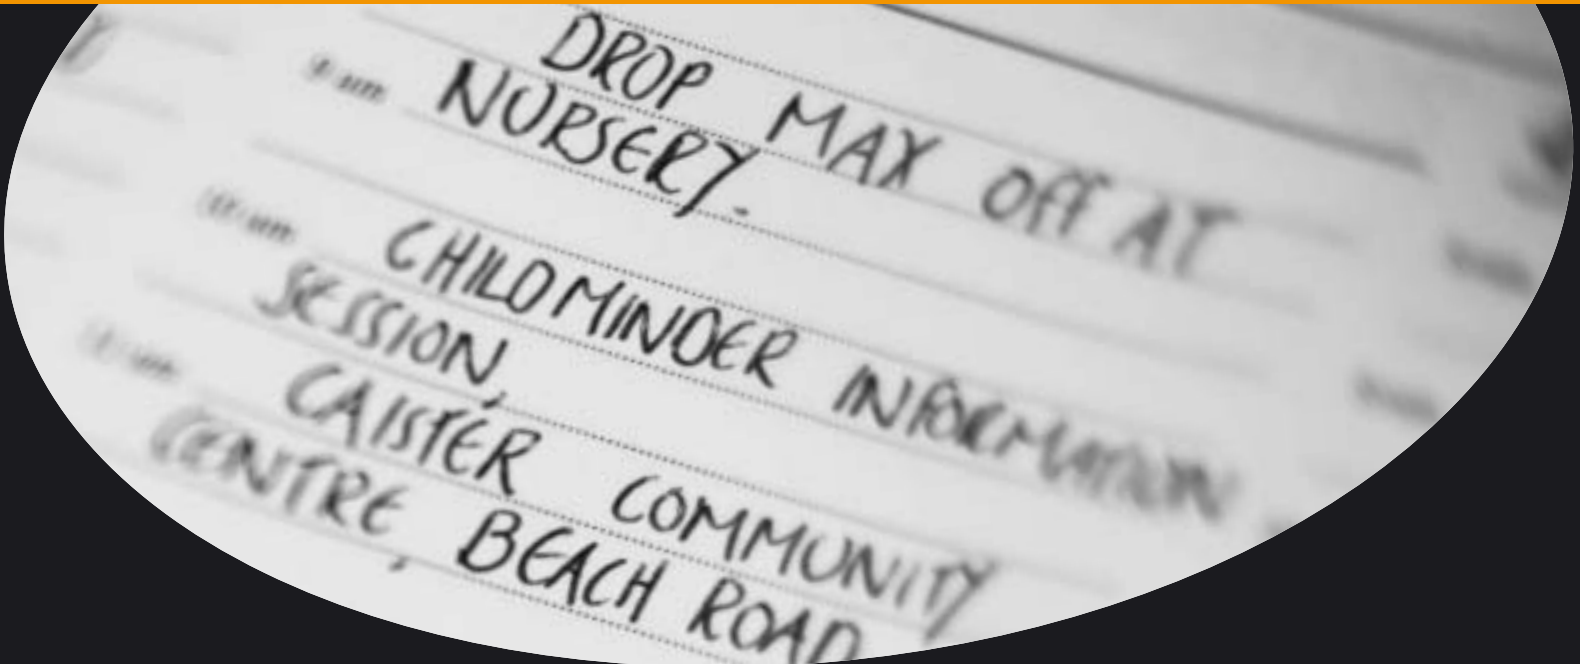 DROP MAX OFF AT
NURSERY.
CHILDMINDER INFORMATION
SESSION,
CAISTER COMMUNITY
CENTRE, BEACH ROAD